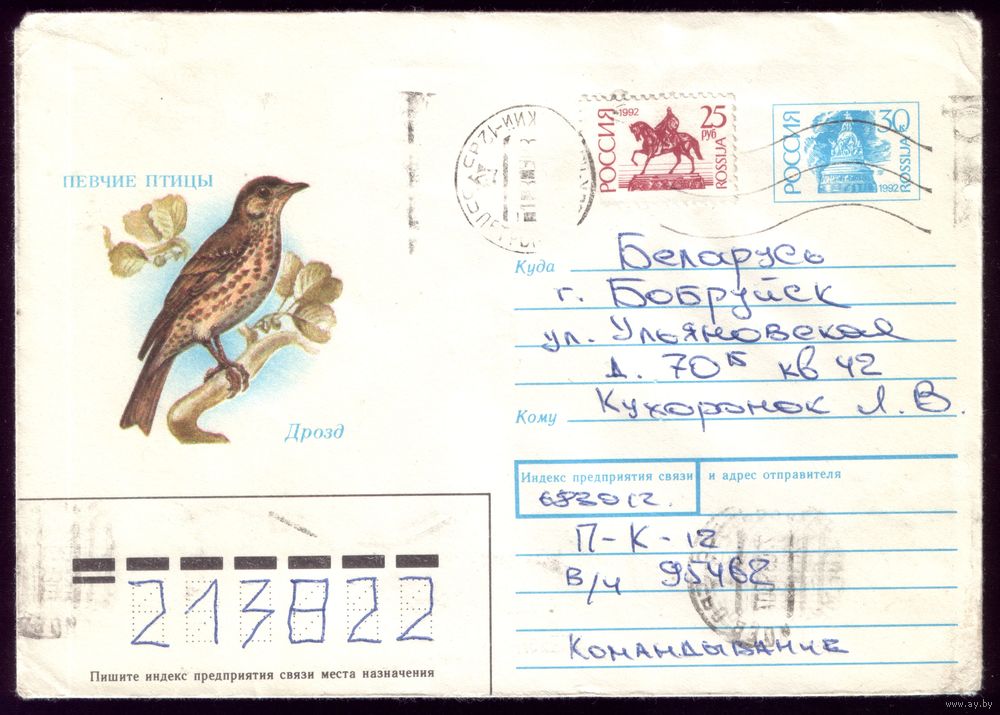 ПЕВЧИЕ ПТИЦЫ
Дрозд
1992
РОССИЯ
25
руб
ROSSIJA
РОССИЯ
30
1992
ROSSIJA
Куда Беларусь
г. Бобруйск
ул. Ульяновская
д. 70Б кв 42
Кому Кухоронок Л. В.
Индекс предприятия связи и адрес отправителя
П-К-12
в/ч 95462
Командывание
213822
Пишите индекс предприятия связи места назначения
www.ay.by